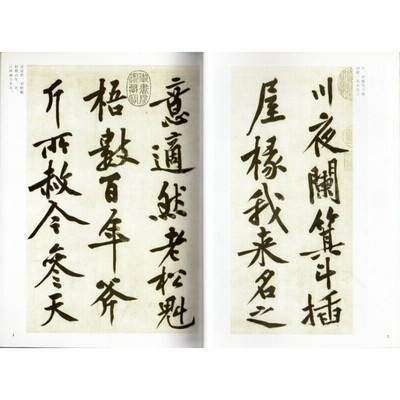 川夜闌箕斗插
屋椽我来名之
意適然老松魁
梧數百年斧
斤所赦今參天